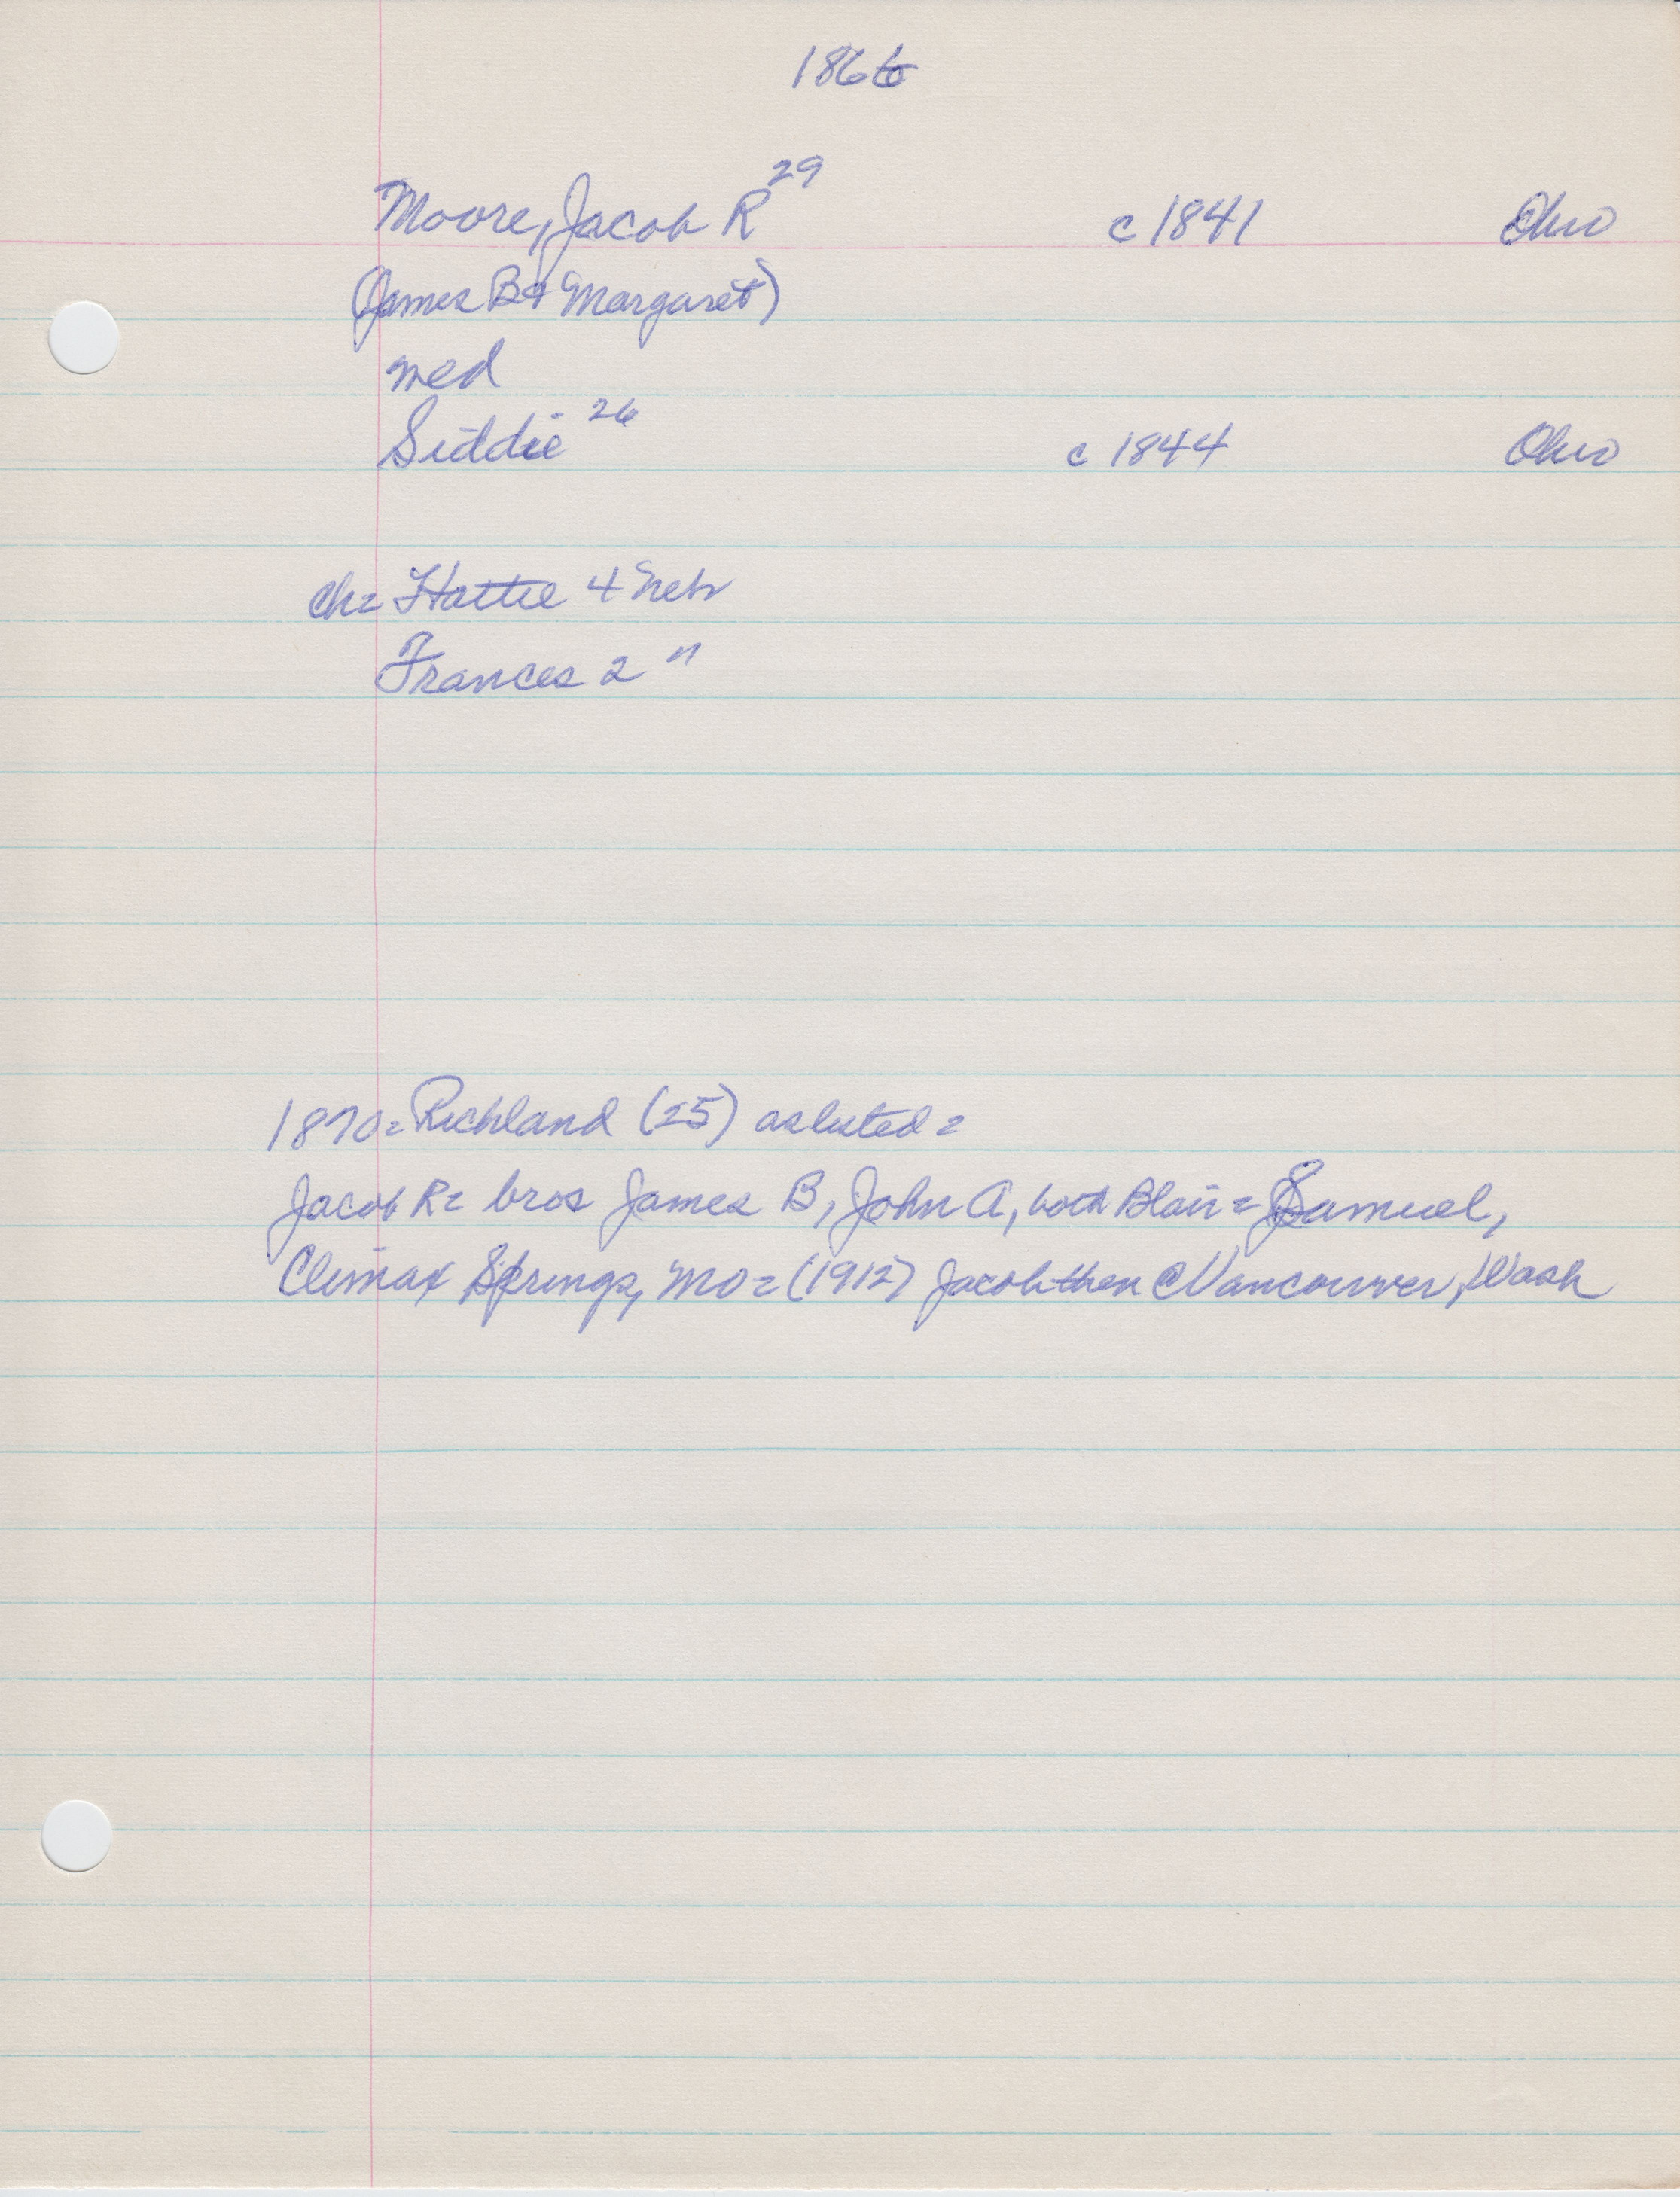 1866
Moore, Jacob R 29 c 1841 Ohio
(James B & Margaret)
med
Siddie 26 c 1844 Ohio
ch= Hattie 4 Neb
Frances 2 "
1870= Richland (25) as listed=
Jacob R= bros James B, John A, both Blair= Samuel,
Climax Springs, Mo= (1912) Jacob then @ Vancouver, Wash